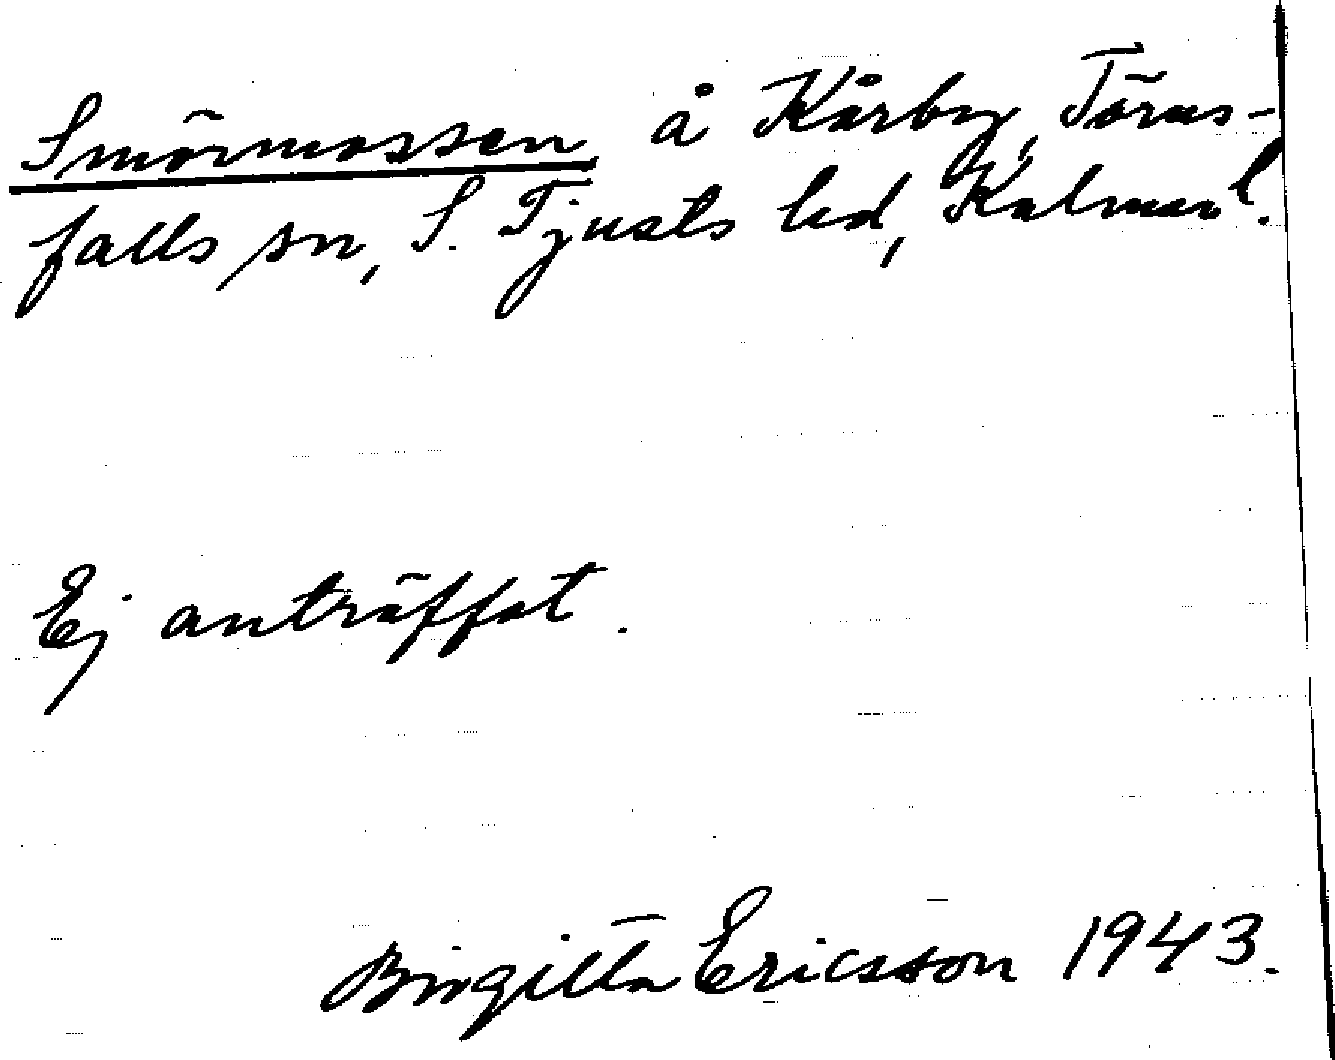 Smörmossen å Kårby, Törns-
falls sn, S. Tjusts hd, Kalmar l.
Ej anträffat.
Birgitta Ericsson 1943.